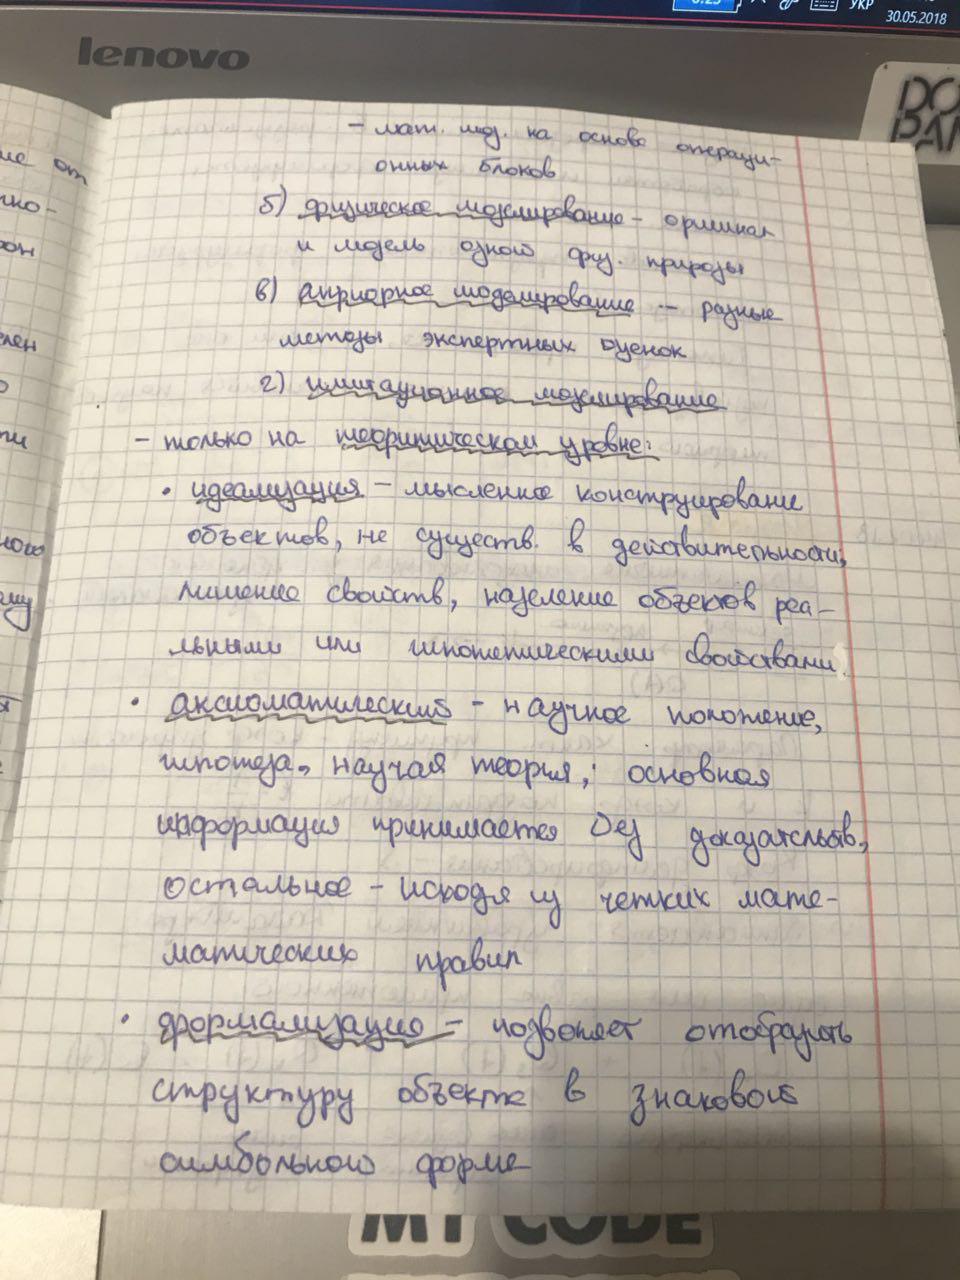 УКР
30.05.2018
lenovo
DO
- мат. мод. на основе операци-
онных блоков
б) физическое моделирование - оригинал
и модель одного физ. природы
в) априорное моделирование - разные
методы экспертных оценок
г) имитационное моделирование
- только на теоритическом уровне:
• идеализация - мысленное конструирование
объектов, не существ. в действительности,
лишение свойств, наделение объектов реа-
льными или гипотетическими свойствами.
• аксиоматический - научное положение,
гипотеза, научая теория; основная
информация принимается без доказательств,
остальное - исходя из четких мате-
матических правил
• формализацию - позволяет отобразить
структуру объекте в знаковой
символьного форме
MY CODE